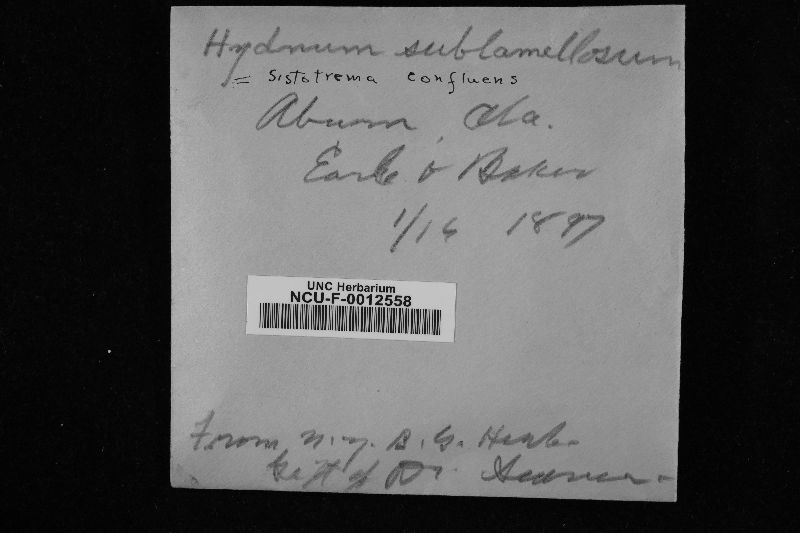 Hydnum sublamellosum
= Sistotrema confluens
Aburn, Ala.
Earle & Baker
1/16 1897
UNC Herbarium
NCU-F-0012558
From N.Y. B. G. Herb.
Gift of Dr.